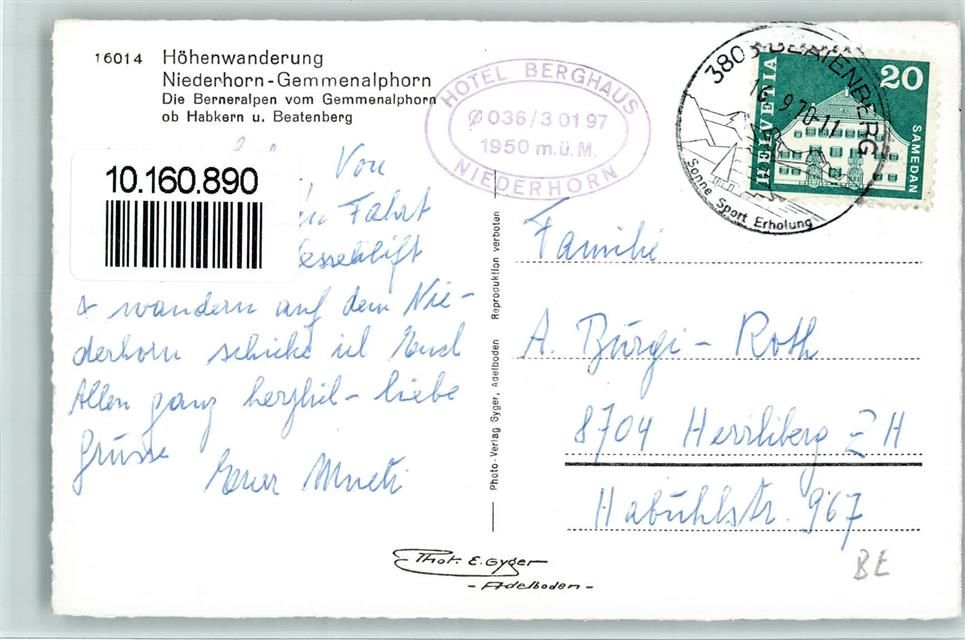 16014 Höhenwanderung
Niederhorn-Gemmenalphorn
Die Berneralpen vom Gemmenalphorn
ob Habkern u. Beatenberg
HOTEL BERGHAUS
036/3 01 97
1950 m.ü.M.
NIEDERHORN
3803 BEATENBERG
16.-9.70-11
Sonne Sport Erholung
HELVETIA
20
SAMEDAN
10.160.890
Von
Fahrt
Sessellift
& wandern auf dem Nie-
derhorn schicke ich Euch
Allen ganz herzlich-liebe
Grüsse
Euer Mueti
Photo-Verlag Gyger, Adelboden Reproduktion verboten
Familie
A. Bürgi-Roth
8704 Herrliberg ZH
Habühlstr. 967
Phot. E. Gyger
- Adelboden -
BE